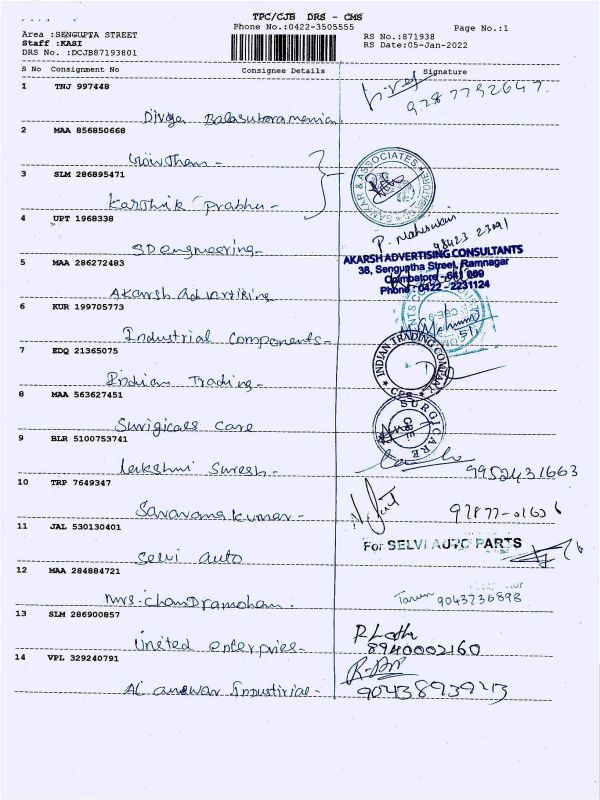 TPC/CJB DRS - CMS
Phone No.:0422-3505555
Page No.:1
Area :SENGUPTA STREET
Staff :KASI
DRS No. :DCJB87193801
RS No.:871938
RS Date:05-Jan-2022
S No Consignment No Consignee Details Signature
1 TNJ 997448
9787752647.
Divya Balasubramanian.
2 MAA 856850668
Gowtham -
3 SLM 286895471
SANKAR & ASSOCIATES
Karthik Prabhu -
4 UPT 1968338
P. Maheswari
98423 23091
SD engineering -
5 MAA 286272483
AKARSH ADVERTISING CONSULTANTS
38, Senguptha Street, Ramnagar
Coimbatore - 641 009
Phone : 0422 - 2231124
Akarsh advertising
6 KUR 199705773
Industrial Components -
7 EDQ 21365075
INDIAN TRADING COMPANY
Indian Trading -
8 MAA 563627451
SURGICARE
Surigicals care
9 BLR 5100753741
Lakshmi Suresh -
9952431663
10 TRP 7649347
Saravanakumar -
97877-01636
11 JAL 530130401
For SELVI AUTO PARTS
Selvi auto
12 MAA 284884721
Mrs. Chandramohan.
9043736898
13 SLM 286900857
United enterpries -
8940002160
14 VPL 329240791
Al anewar Industirial -
9043893943